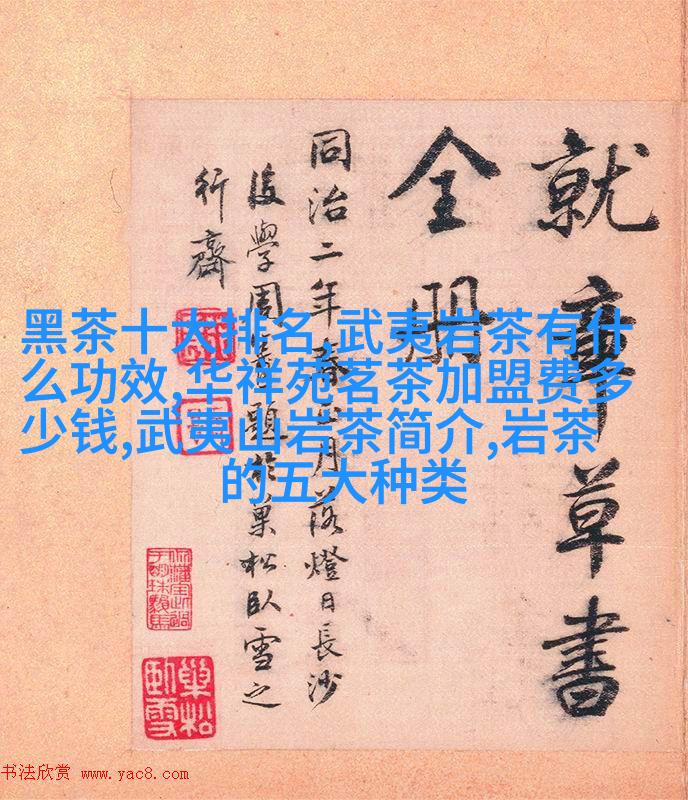 黑茶十大排名,武夷岩茶有什
么功效,华祥苑茗茶加盟费多
少钱,武夷山岩茶简介,岩茶
的五大种类
就章草書
全册
同治二年春正月落燈日長沙
後學周題於巢松臥雪之
行齋
巢松臥雪
书法欣赏 www.yac8.com